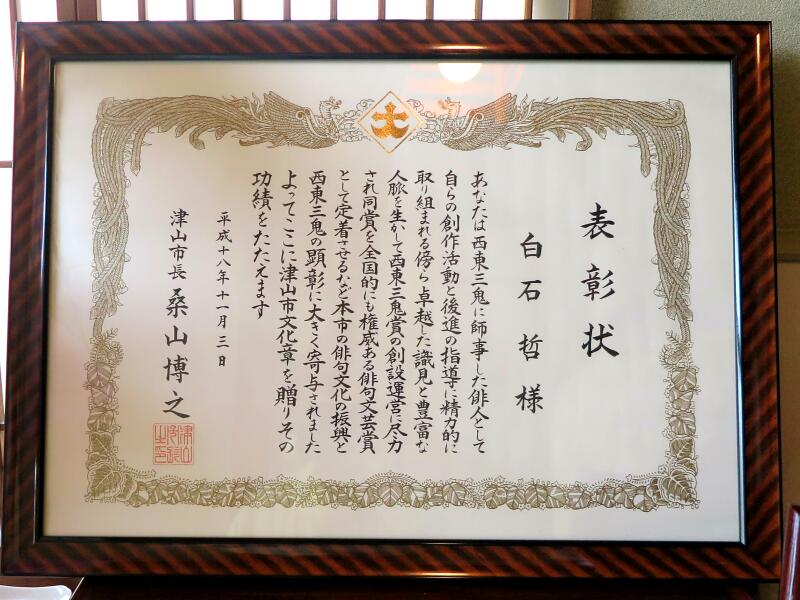 表彰状
白石哲様
あなたは西東三鬼に師事した俳人として
自らの創作活動と後進の指導に精力的に
取り組まれる傍ら卓越した識見と豊富な
人脈を生かして西東三鬼賞の創設運営に尽力
され同賞を全国的にも権威ある俳句文芸賞
として定着させるなど本市の俳句文化の振興と
西東三鬼の顕彰に大きく寄与されました
よってここに津山市文化章を贈りその
功績をたたえます
平成十八年十一月三日
津山市長 桑山博之